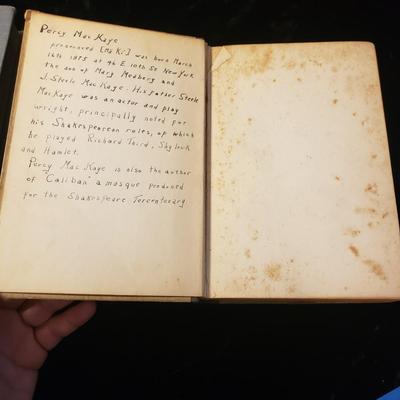 Percy Mac Kaye
pronounced [Ma Ki] was born March
16th 1875 at 46 E 10th St New York
the son of Mary Medberg and
J. Steele Mac Kaye. His father Steele
MacKaye was an actor and play
wright, principally noted for
his Shakespearean roles, of which
he played Richard Third, Shylock
and Hamlet.
Percy Mac Kaye is also the author
of "Caliban" a masque produced
for the Shakespeare Tercentenary